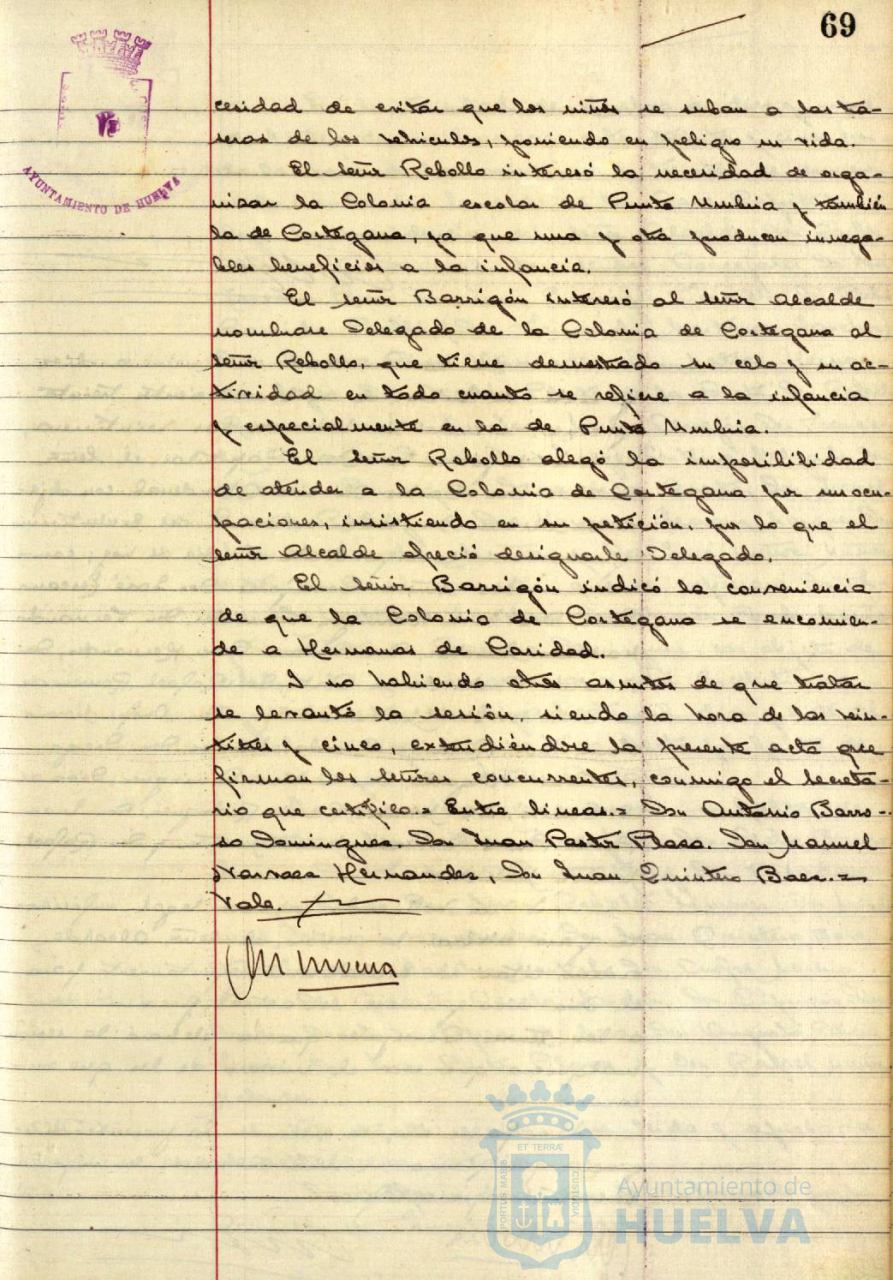 69
AYUNTAMIENTO DE HUELVA
cesidad de evitar que los niños se suban a las tra-
seras de los vehiculos, poniendo en peligro su vida.
El señor Rebollo interesó la necesidad de orga-
nizar la Colonia escolar de Punta Umbria y también
la de Cortegana, ya que una y otra producen innega-
bles beneficios a la infancia.
El señor Barrigón interesó al señor Alcalde
nombrase Delegado de la Colonia de Cortegana al
señor Rebollo, que tiene demostrado su celo y su ac-
tividad en todo cuanto se refiere a la infancia
y especialmente en la de Punta Umbria.
El señor Rebollo alegó la imposibilidad
de atender a la Colonia de Cortegana por sus ocu-
paciones, insistiendo en su petición, por lo que el
señor Alcalde ofreció designarle Delegado.
El señor Barrigón indicó la conveniencia
de que la Colonia de Cortegana se encomien-
de a Hermanas de Caridad.
I no habiendo otros asuntos de que tratar
se levantó la sesión, siendo la hora de las vein-
titres y cinco, extendiéndose la presente acta que
firman los señores concurrentes, conmigo el secreta-
rio que certifico.= Entre lineas.= Don Antonio Barro-
so Dominguez. Don Juan Pastor Plaza. Don Manuel
Narvaez Hernandez, Don Juan Quintero Baez.=
Vale.
ET TERRÆ
PORTUS MARIS
CUSTODIA
Ayuntamiento de
HUELVA